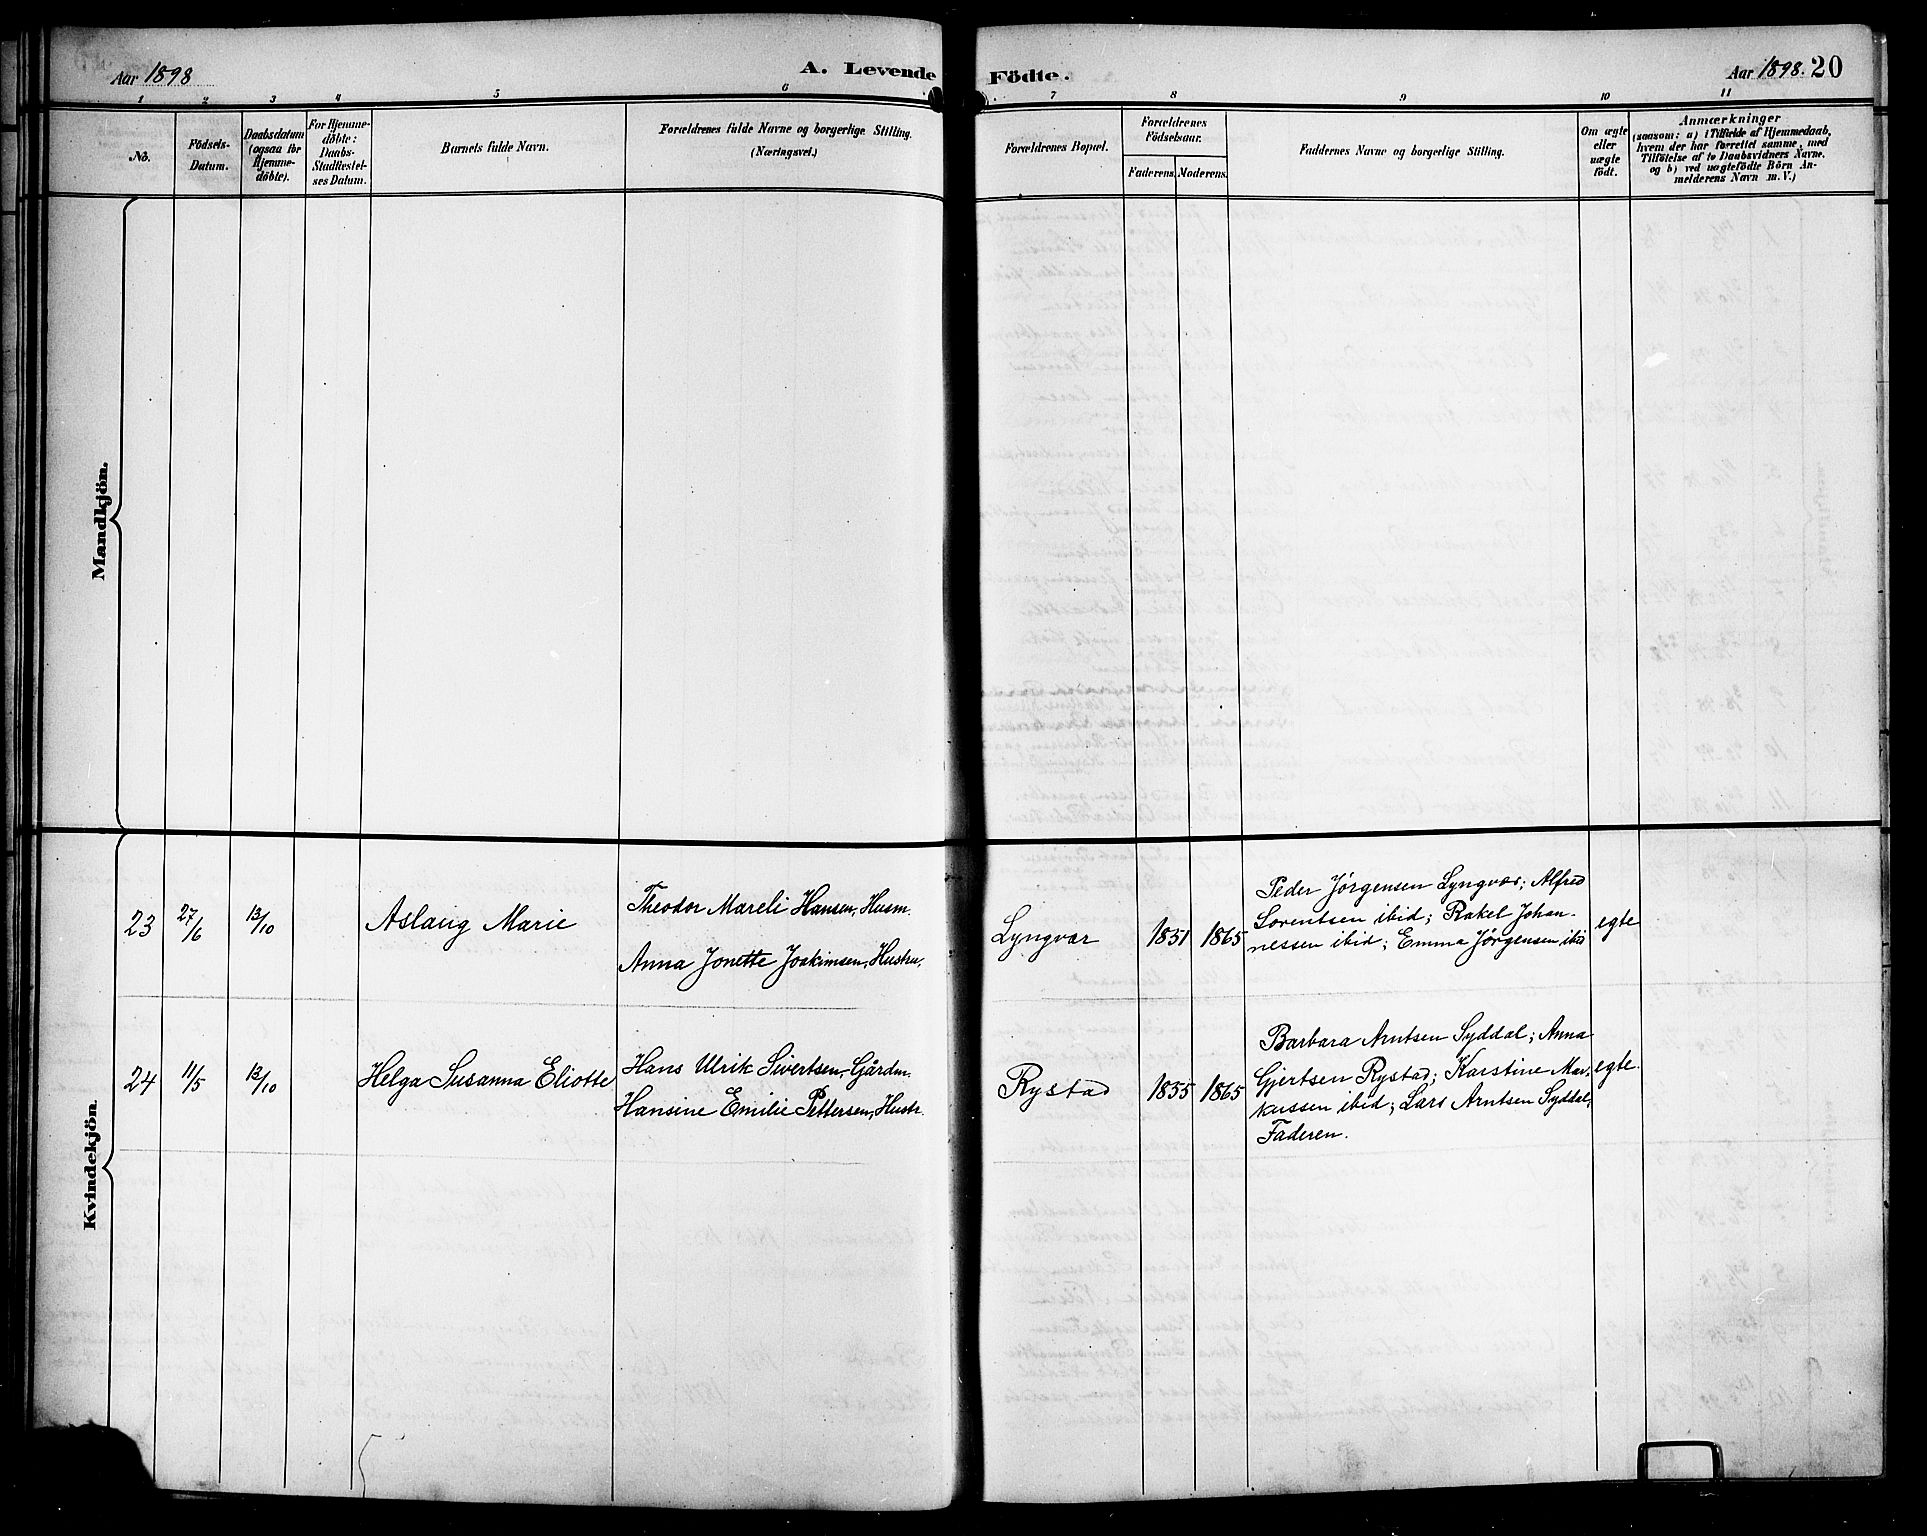 Aar 1898
A. Levende Födte.
Aar 1898. 20
1 2 3 4 5 6 7 8 9 10 11
No.
Födsels-
Datum.
Daabsdatum
(ogsaa for
Hjemme-
döbte).
For Hjemme-
döbte:
Daabs-
Stadfæstel-
ses Datum.
Barnets fulde Navn.
Forældrenes fulde Navne og borgerlige Stilling.
(Næringsvei.)
Forældrenes Bopæl.
Forældrenes
Födselsaar.
Faderens. Moderens.
Faddernes Navne og borgerlige Stilling.
Om ægte
eller
uægte
födt.
Anmærkninger
(saasom: a) i Tilfælde af Hjemmedaab,
hvem der har forrettet samme, med
Tilföielse af to Daabsvidners Navne,
og b) ved uægtefödte Börn An-
melderens Navn m. V.)
Mandkjön.
Kvindekjön.
23 27/6 13/10 Aslaug Marie
Theodor Mareli Hansen, Husm.
Anna Jonette Joakimsen, Hustru,
Lyngvær 1851 1865
Peder Jørgensen Lyngvær; Alfred
Lorentsen ibid; Rakel Johan-
nessen ibid; Emma Jørgensen ibid
egte
24 11/5 13/10 Helga Susanna Eliotte
Hans Ulrik Sivertsen, Gårdm.
Hansine Emilie Pettersen, Hustr.
Rystad 1835 1865
Barbara Arntsen Syddal; Anna
Gjertsen Rystad; Karstine Mar-
kussen ibid; Lars Arntsen Syddal;
Faderen.
egte.